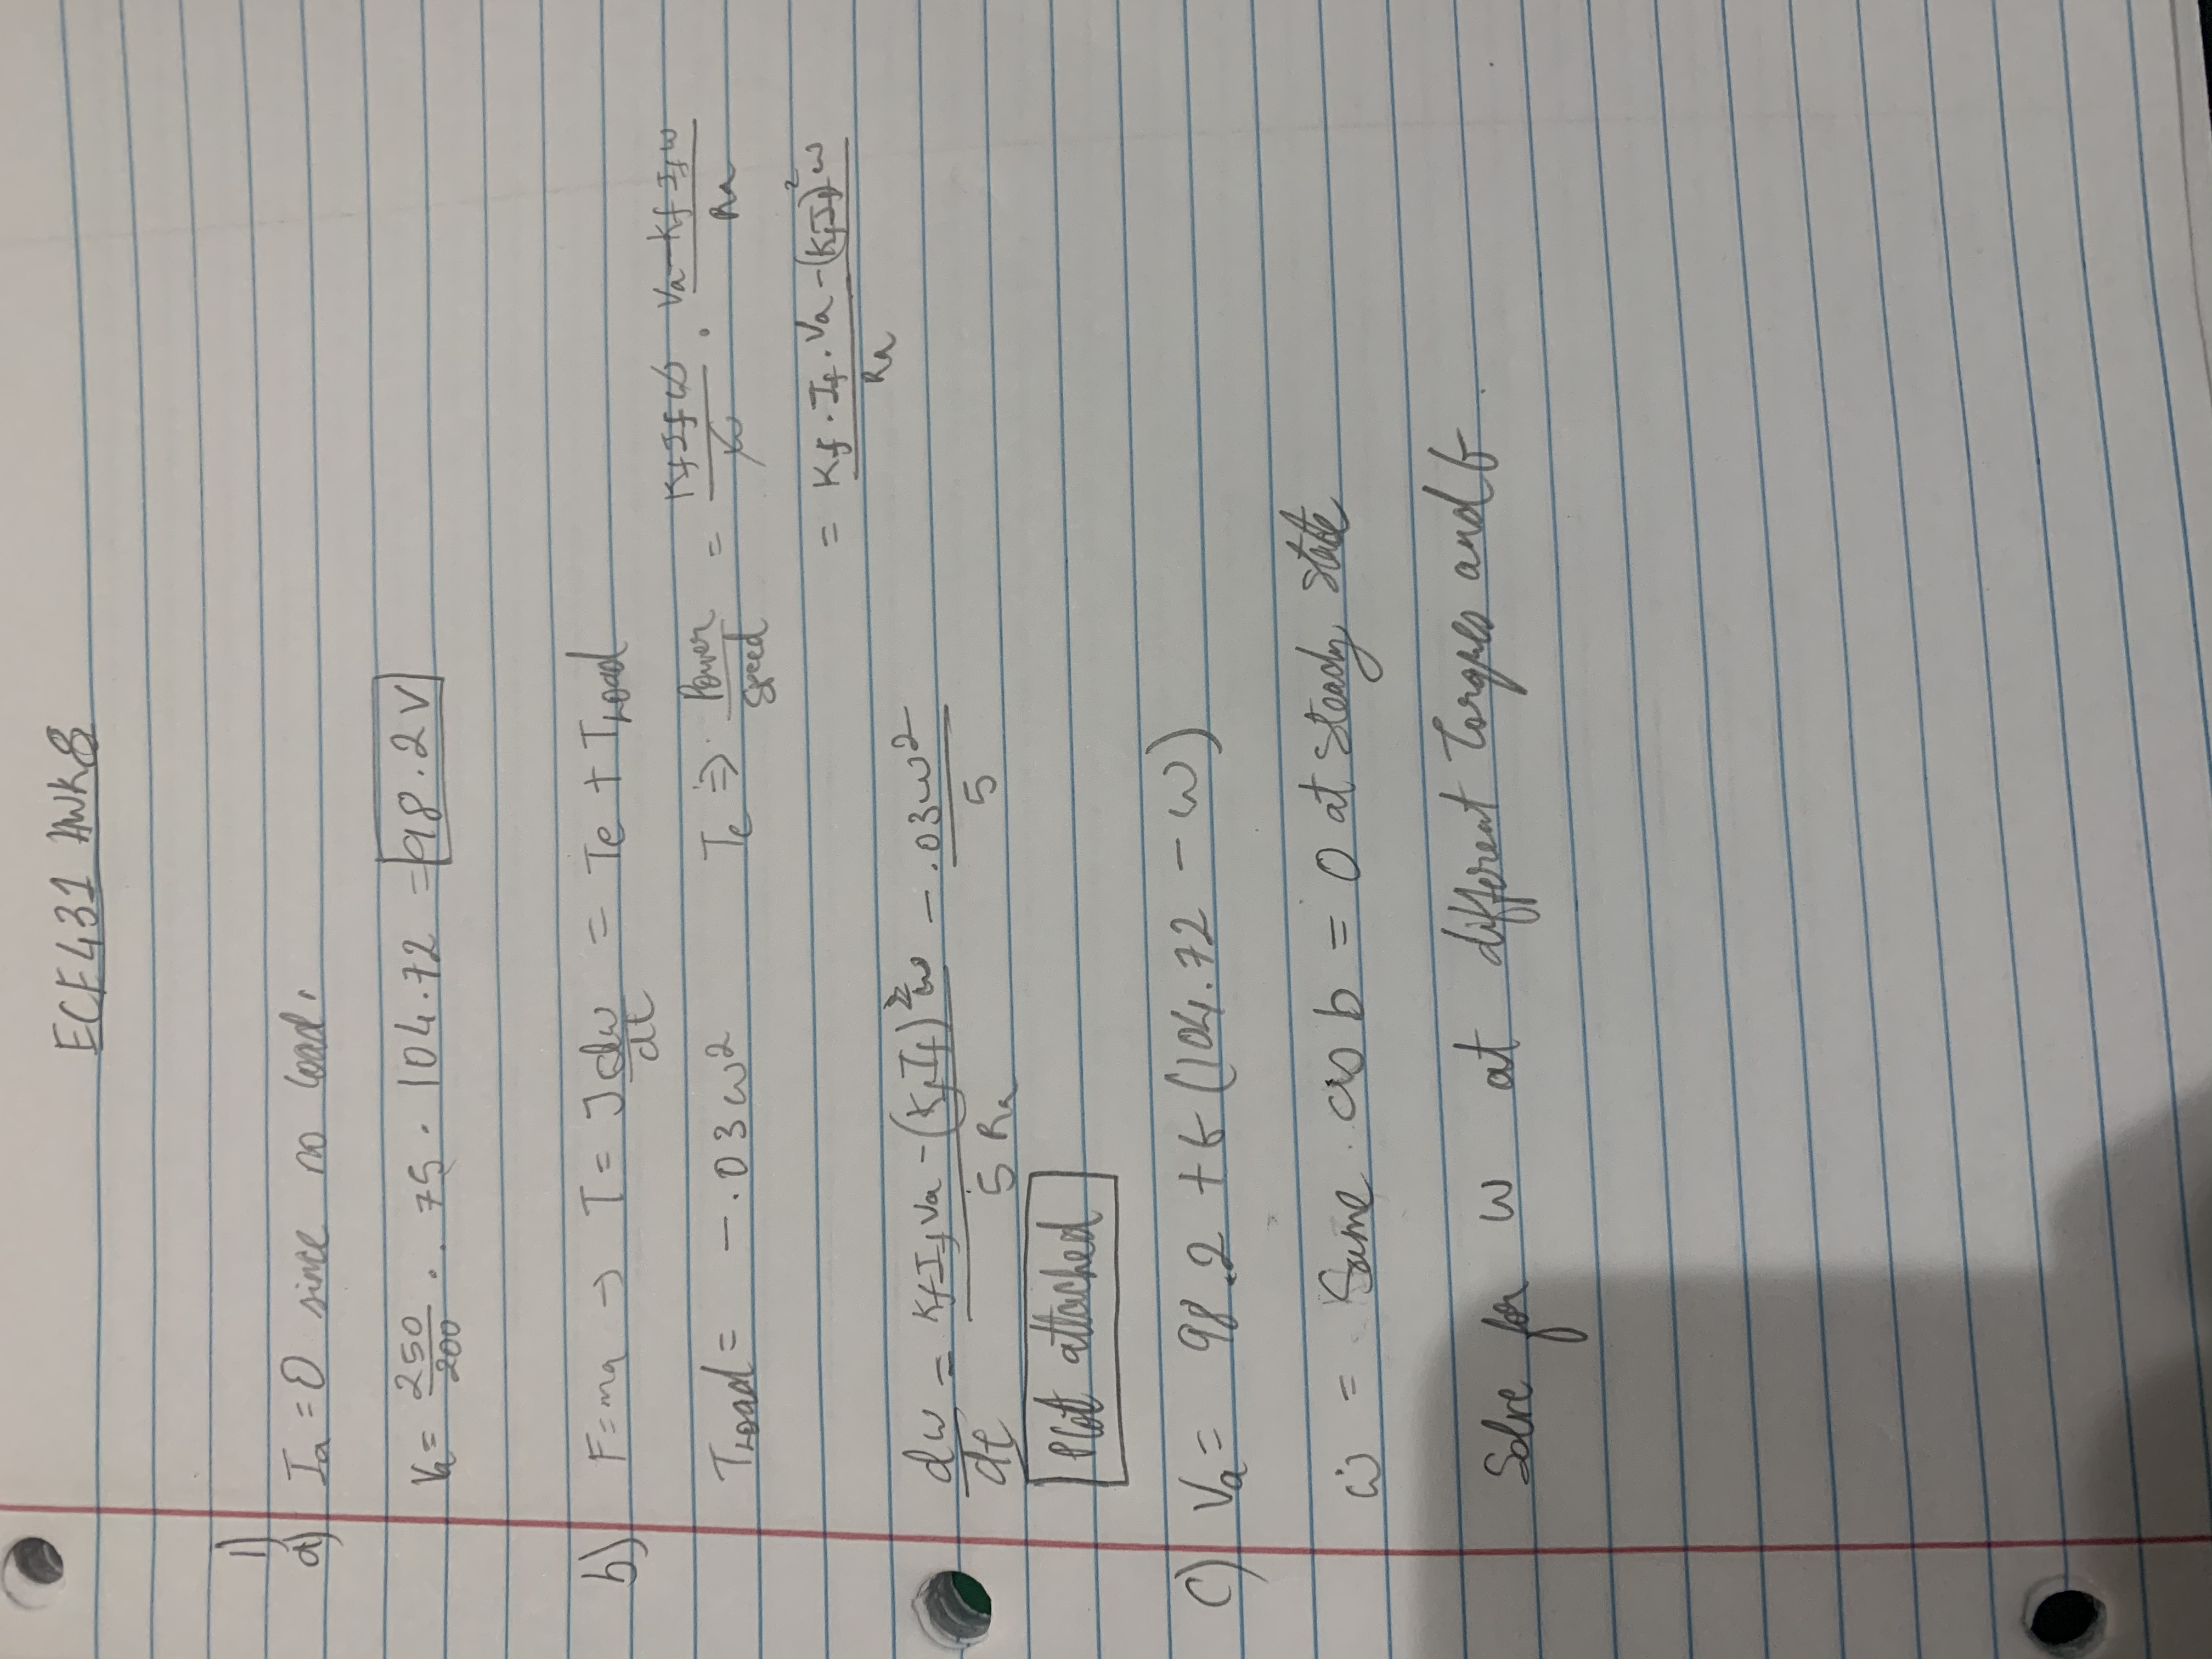 ECE431 HWK8
1)
a) Ia = 0 since no load.
Va = 250/200 · .75 · 104.72 = 98.2 V
b) F=ma → T = J dω/dt = Te + TLoad
TLoad = -.03ω² Te ⇒ Power/Speed = KfIfω/ω · Va-KfIfω/Ra
= Kf·If·Va-(KfIf)²ω/Ra
dω/dt = KfIfVa-(KfIf)²ω/5Ra - .03ω²/5
Plot attached
c) Va = 98.2 + G(104.72 - ω)
ω̇ = Same as b = 0 at steady state
Solve for ω at different Torques and G.